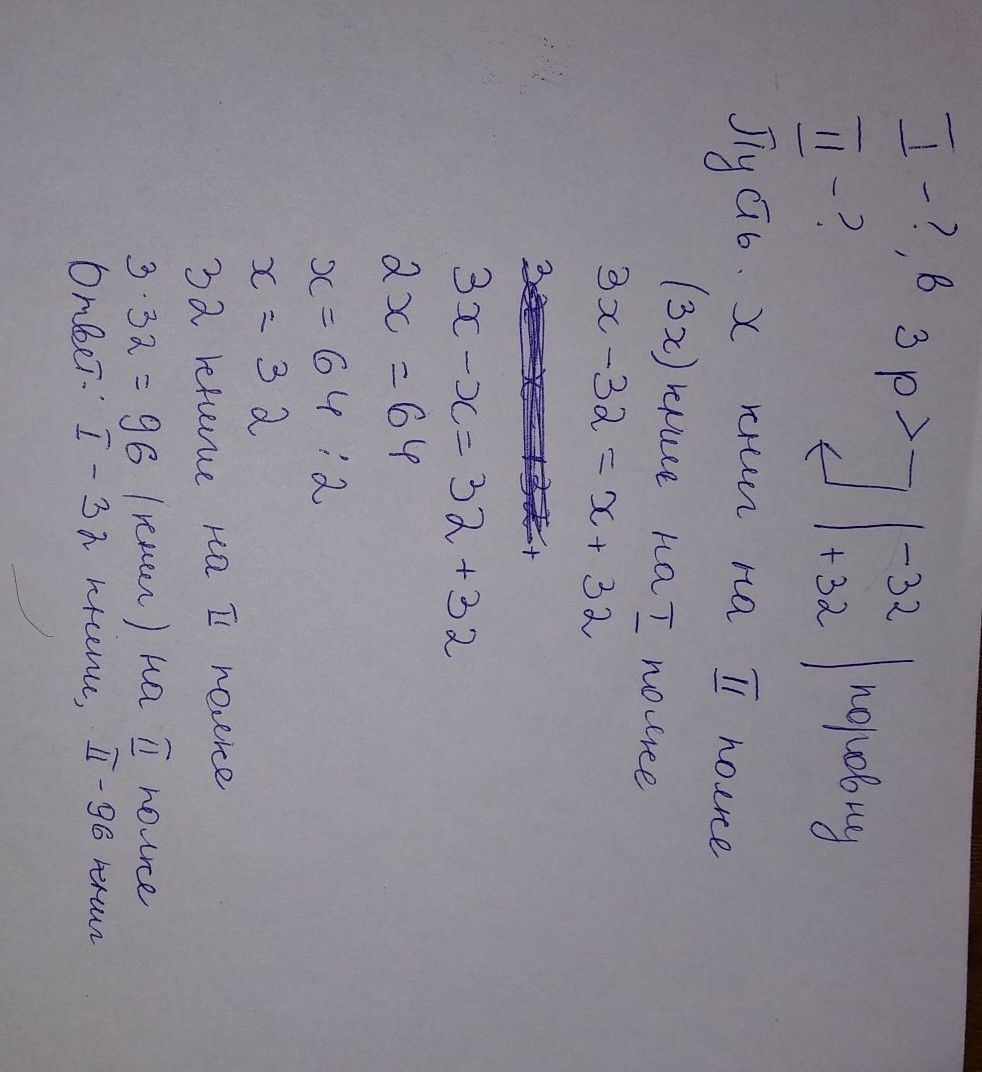 I - ?, в 3 р > | -32 | поровну
II - ? | +32 |
Пусть x книг на II полке
(3x) книг на I полке
3x - 32 = x + 32
3x - x = 32 + 32
2x = 64
x = 64 : 2
x = 32
32 книги на II полке
3 · 32 = 96 (книг) на II полке
Ответ: I - 32 книги, II - 96 книг